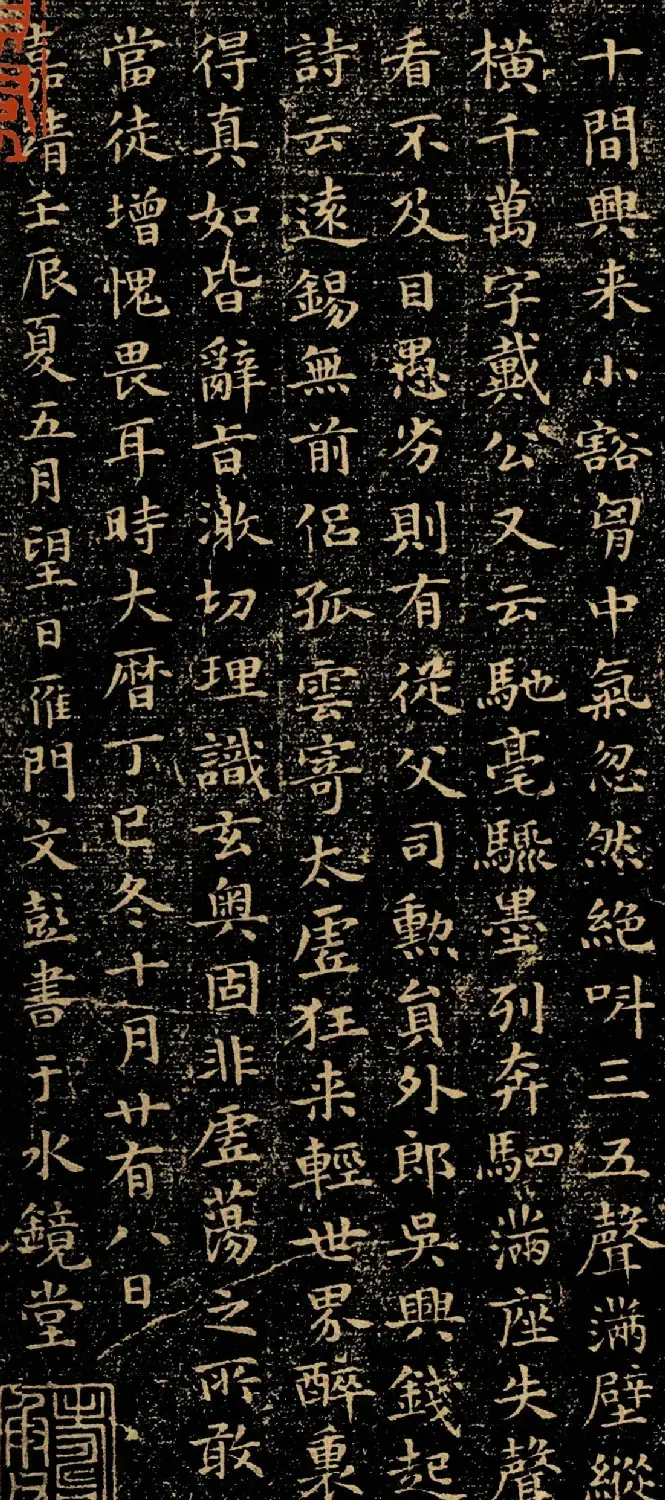 十間興来小豁胷中氣忽然絶呌三五聲滿壁縱
橫千萬字戴公又云馳毫驟墨列奔駟滿座失聲
看不及目愚劣則有從父司勲員外郎吳興錢起
詩云遠錫無前侶孤雲寄太虛狂来輕世界醉裏
得真如皆辭旨激切理識玄奥固非虛蕩之所敢
當徒增愧畏耳時大暦丁巳冬十月廿有八日
嘉靖壬辰夏五月望日雁門文彭書于水鏡堂